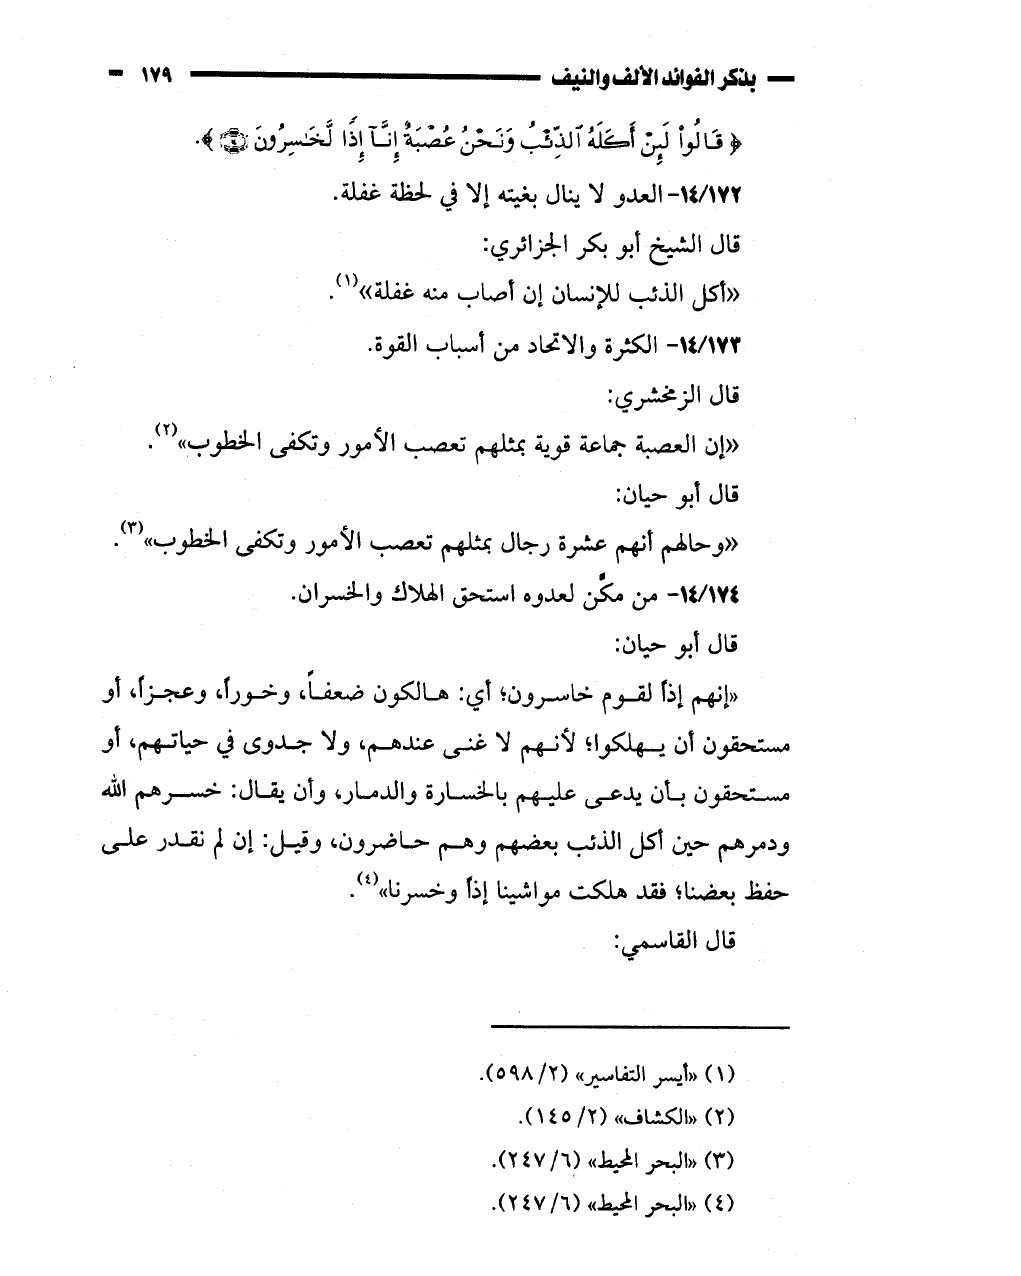 بذكر الفوائد الألف والنيف ١٧٩
﴿ قَالُوا۟ لَئِنْ أَكَلَهُ ٱلذِّئْبُ وَنَحْنُ عُصْبَةٌ إِنَّآ إِذًا لَّخَـٰسِرُونَ ۝١٤ ﴾.
١٤/١٧٢- العدو لا ينال بغيته إلا في لحظة غفلة.
قال الشيخ أبو بكر الجزائري:
«أكل الذئب للإنسان إن أصاب منه غفلة»(١).
١٤/١٧٣- الكثرة والاتحاد من أسباب القوة.
قال الزمخشري:
«إن العصبة جماعة قوية بمثلهم تعصب الأمور وتكفى الخطوب»(٢).
قال أبو حيان:
«وحالهم أنهم عشرة رجال بمثلهم تعصب الأمور وتكفى الخطوب»(٣).
١٤/١٧٤- من مكَّن لعدوه استحق الهلاك والخسران.
قال أبو حيان:
«إنهم إذاً لقوم خاسرون؛ أي: هالكون ضعفاً، وخوراً، وعجزاً، أو
مستحقون أن يهلكوا؛ لأنهم لا غنى عندهم، ولا جدوى في حياتهم، أو
مستحقون بأن يدعى عليهم بالخسارة والدمار، وأن يقال: خسرهم الله
ودمرهم حين أكل الذئب بعضهم وهم حاضرون، وقيل: إن لم نقدر على
حفظ بعضنا؛ فقد هلكت مواشينا إذاً وخسرنا»(٤).
قال القاسمي:
(١) «أيسر التفاسير» (٢/ ٥٩٨).
(٢) «الكشاف» (٢/ ١٤٥).
(٣) «البحر المحيط» (٦/ ٢٤٧).
(٤) «البحر المحيط» (٦/ ٢٤٧).